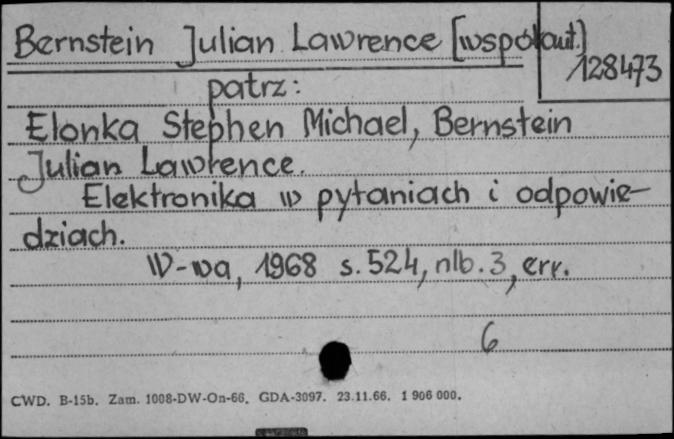 Bernstein Julian Lawrence [współaut.]
128473
patrz:
Elonka Stephen Michael, Bernstein
Julian Lawrence.
Elektronika w pytaniach i odpowie-
dziach.
W-wa, 1968 s. 524, nlb. 3, err.
6
CWD. B-15b. Zam. 1008-DW-On-66. GDA-3097. 23.11.66. 1 906 000.